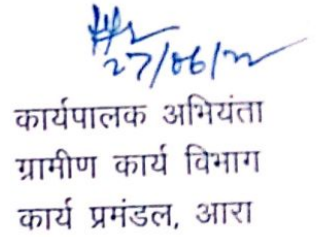 27/06/22
कार्यपालक अभियंता
ग्रामीण कार्य विभाग
कार्य प्रमंडल, आरा